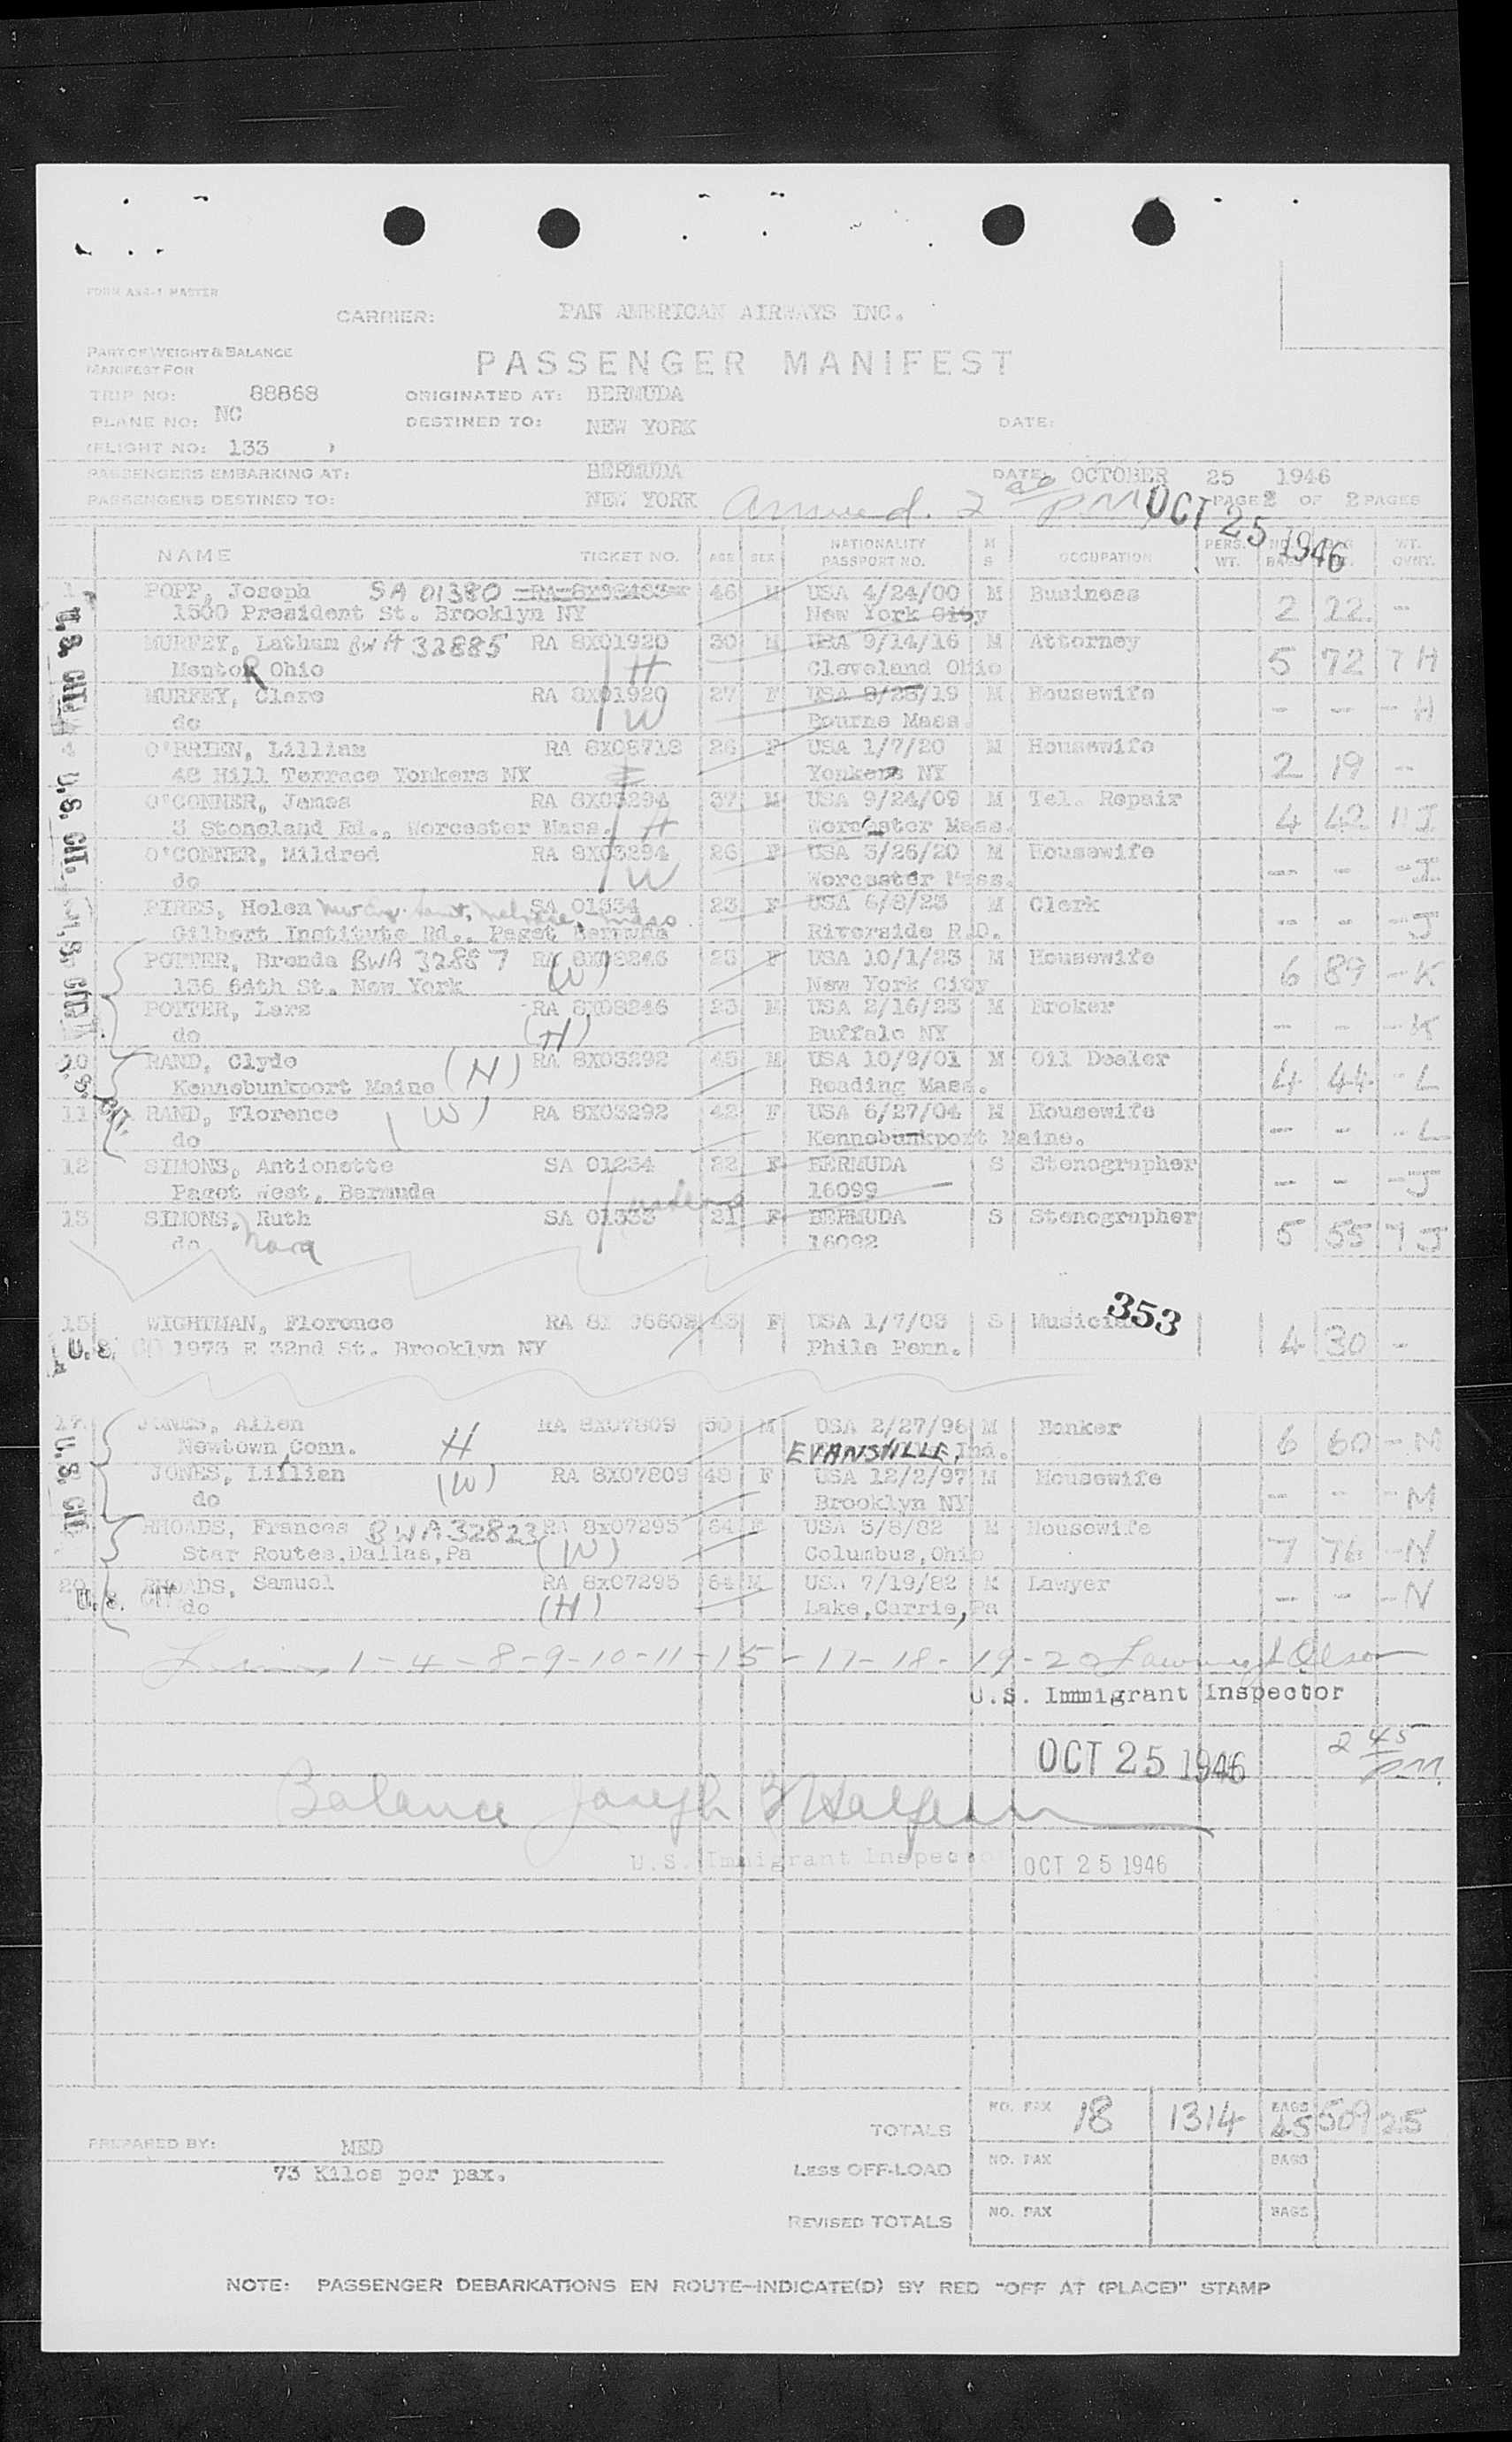 FORM ANG-1 MASTER
CARRIER: PAN AMERICAN AIRWAYS INC.
PART OF WEIGHT & BALANCE
MANIFEST FOR
PASSENGER MANIFEST
TRIP NO: 88868 ORIGINATED AT: BERMUDA
PLANE NO: NC DESTINED TO: NEW YORK DATE:
(FLIGHT NO: 133 )
PASSENGERS EMBARKING AT: BERMUDA DATE: OCTOBER 25 1946
PASSENGERS DESTINED TO: NEW YORK Arrived. 2 PM OCT 25 1946 PAGE 2 OF 2 PAGES
NAME TICKET NO. AGE SEX NATIONALITY PASSPORT NO. M S OCCUPATION PERS. WT. WT. OVWT.
1 POPP, Joseph SA 01380 46 M USA 4/24/00 M Business
1500 President St. Brooklyn NY New York City 2 22 -
MURFEY, Latham BWA 32885 RA 8X01920 30 M USA 9/14/16 M Attorney
MentoR Ohio H Cleveland Ohio 5 72 7 H
MURFEY, Clare RA 8X01920 27 F USA 8/28/19 M Housewife
do W Bourne Mass. - - - H
4 O'BRIEN, Lillian RA 8X08718 26 F USA 1/7/20 M Housewife
48 Hill Terrace Yonkers NY Yonkers NY 2 19 -
O'CONNER, James RA 8X03294 37 M USA 9/24/09 M Tel. Repair
3 Stoneland Rd., Worcester Mass. H Worcester Mass. 4 42 11 J
O'CONNER, Mildred RA 8X03294 26 F USA 5/26/20 M Housewife
do W Worcester Mass. - - - J
PIRES, Helen SA 01334 23 F USA 6/8/23 M Clerk
Gilbert Institute Rd., Paget Bermuda Riverside R.D. - - - J
POTTER, Brenda BWA 32887 RA 8X08246 23 F USA 10/1/23 M Housewife
136 64th St. New York (W) New York City 6 89 - K
POTTER, Lars RA 8X08246 23 M USA 2/16/23 M Broker
do (H) Buffalo NY - - - K
10 RAND, Clyde RA 8X03292 45 M USA 10/9/01 M Oil Dealer
Kennebunkport Maine (H) Reading Mass. 4 44 - L
11 RAND, Florence RA 8X03292 42 F USA 6/27/04 M Housewife
do (W) Kennebunkport Maine. - - - L
12 SIMONS, Antionette SA 01234 22 F BERMUDA S Stenographer
Paget West, Bermuda 16099 - - - J
13 SIMONS, Ruth SA 01333 21 F BERMUDA S Stenographer
do Nora 16092 5 55 7 J
353
15 WIGHTMAN, Florence RA 8X 06608 43 F USA 1/7/03 S Musician
U.S. 1973 E 32nd St. Brooklyn NY Phila Penn. 4 30 -
17 JONES, Allen RA 8X07809 50 M USA 2/27/96 M Banker
Newtown, Conn. H EVANSVILLE, Ind. 6 60 - M
JONES, Lillian RA 8X07809 48 F USA 12/2/97 M Housewife
do (W) Brooklyn NY - - - M
RHOADS, Frances BWA 32823 RA 8X07295 64 F USA 5/8/82 M Housewife
Star Routes, Dallas, Pa (W) Columbus, Ohio 7 76 - N
20 RHOADS, Samuel RA 8x07295 64 M USA 7/19/82 M Lawyer
U.S. CIT do (H) Lake, Carrie, Pa - - - N
1-4-8-9-10-11-15-17-18-19-20
U.S. Immigrant Inspector
OCT 25 1946 2 45 PM
Balance Joseph
U.S. Immigrant Inspector OCT 25 1946
TOTALS NO. PAX 18 1314 BAGS 45 509 25
PREPARED BY: MED
73 Kilos per pax.
LESS OFF-LOAD NO. PAX BAGS
REVISED TOTALS NO. PAX BAGS
NOTE: PASSENGER DEBARKATIONS EN ROUTE-INDICATE(D) BY RED "OFF AT (PLACE)" STAMP